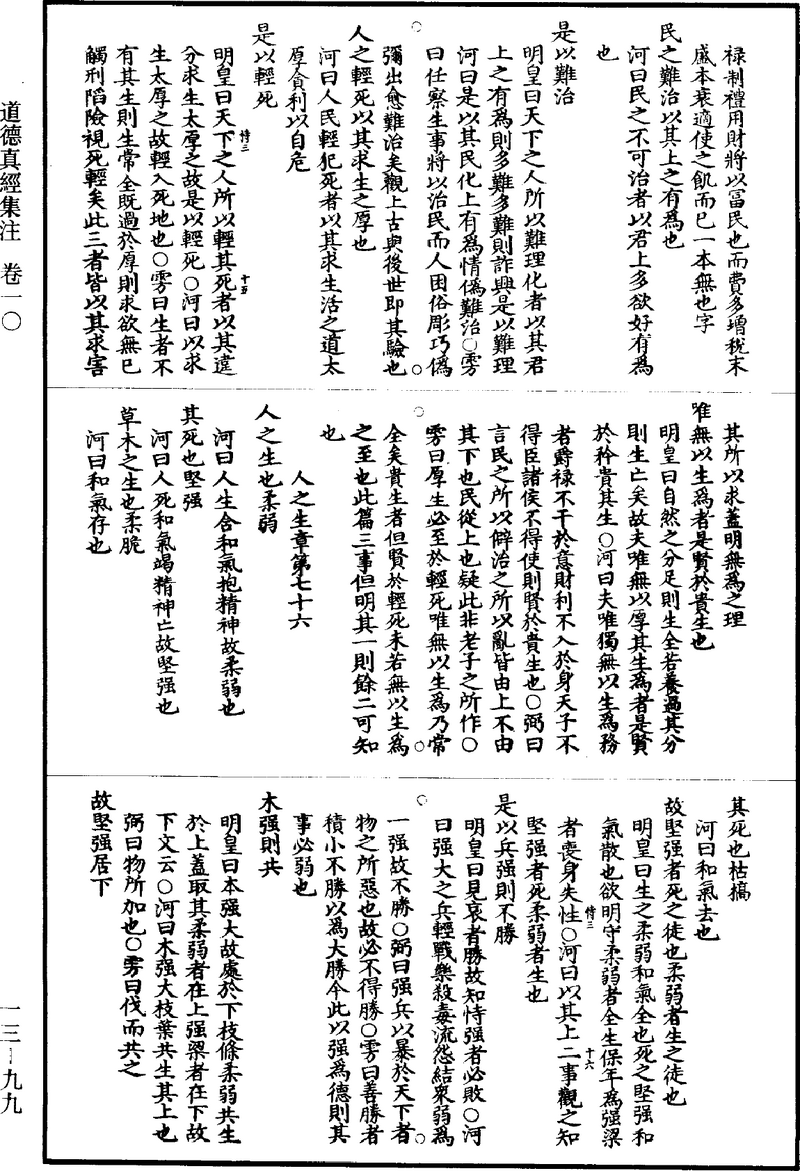 道德真經集注　卷一〇
一三－九九
祿制禮用財將以冨民也而費多增稅末
盛本衰適使之飢而已一本無也字
民之難治以其上之有為也
河曰民之不可治者以君上多欲好有為
也
是以難治
明皇曰天下之人所以難理化者以其君
上之有為則多難多難則詐興是以難理
河曰是以其民化上有為情偽難治○雱
曰任察生事將以治民而人困俗彫巧偽
彌出愈難治矣觀上古與後世即其驗也
人之輕死以其求生之厚也
河曰人民輕犯死者以其求生活之道太
厚貪利以自危
是以輕死
明皇曰天下之人所以輕其死者以其違
分求生太厚之故是以輕死○河曰以求
生太厚之故輕入死地也○雱曰生者不
有其生則生常全既過於厚則求欲無已
觸刑陷險視死輕矣此三者皆以其求害
恃三
十五
其所以求蓋明無為之理
唯無以生為者是賢於貴生也
明皇曰自然之分足則生全若養過其分
則生亡矣故夫唯無以厚其生為者是賢
於矜貴其生○河曰夫唯獨無以生為務
者爵祿不干於意財利不入於身天子不
得臣諸侯不得使則賢於貴生也○弼曰
言民之所以僻治之所以亂皆由上不由
其下也民從上也疑此非老子之所作○
雱曰厚生必至於輕死唯無以生為乃常
全矣貴生者但賢於輕死未若無以生為
之至也此篇三事但明其一則餘二可知
也
人之生章第七十六
人之生也柔弱
河曰人生含和氣抱精神故柔弱也
其死也堅强
河曰人死和氣竭精神亡故堅强也
草木之生也柔脆
河曰和氣存也
其死也枯槁
河曰和氣去也
故堅强者死之徒也柔弱者生之徒也
明皇曰生之柔弱和氣全也死之堅强和
氣散也欲明守柔弱者全生保年為强梁
者喪身失性○河曰以其上二事觀之知
堅强者死柔弱者生也
恃三
十六
是以兵强則不勝
明皇曰見哀者勝故知恃强者必敗○河
曰强大之兵輕戰樂殺毒流怨結衆弱為
一强故不勝○弼曰强兵以暴於天下者
物之所惡也故必不得勝○雱曰善勝者
積小不勝以為大勝今此以强為德則其
事必弱也
木强則共
明皇曰本强大故處於下枝條柔弱共生
於上蓋取其柔弱者在上强梁者在下故
下文云○河曰木强大枝葉共生其上也
弼曰物所加也○雱曰伐而共之
故堅强居下